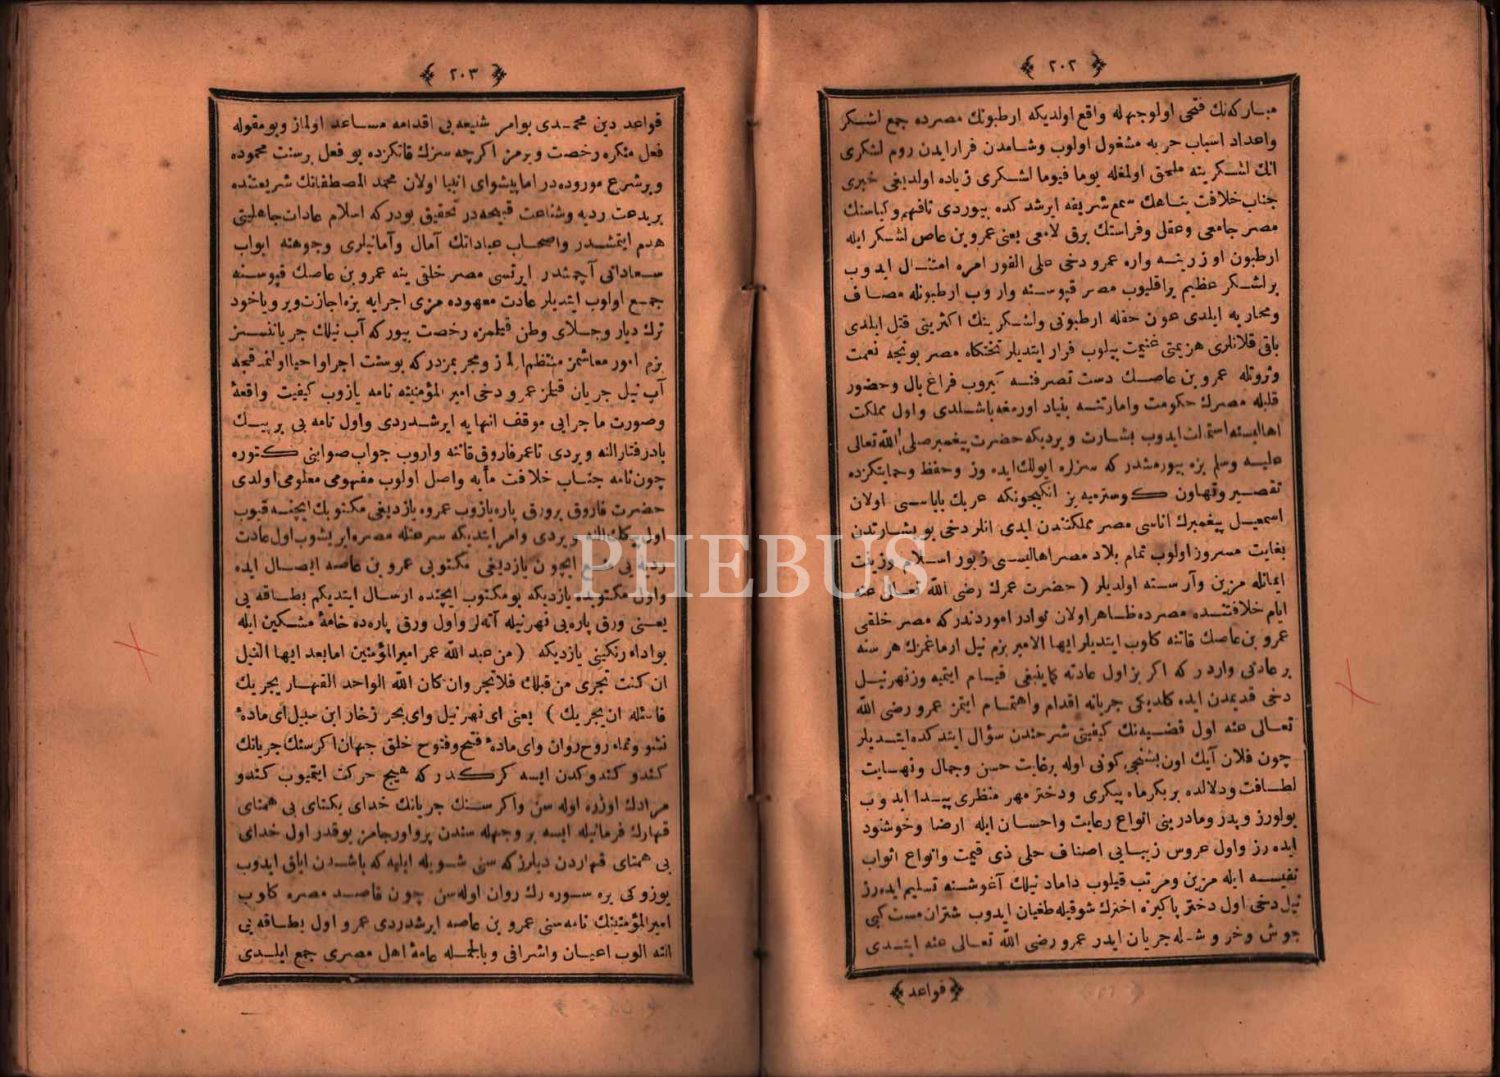 ٢٠٢
مباركه‌نك فتحى اولوجهله واقع اولديكه ارطبونك مصرده جمع لشكر
واعداد اسباب حربه مشغول اولوب وشامدن فرار ايدن روم لشكرى
انك لشكرينه ملحق اولمغله يوما فيوما لشكرى زياده اولديغى خبرى
جناب خلافت پناهك سمع شريفه ايرشدكده بيوردى
مصر جامعى وعقل وفراستك برق لامعى يعنى عمرو بن عاص لشكر ايله
ارطبون اوزرينه واره عمرو دخى على الفور امره امتثال ايدوب
بر لشكر عظيم يراقليوب مصر قپوسنه واروب ارطبونله مصاف
ومحاربه ايلدى عون حقله ارطبونى ولشكرينك اكثرينى قتل ايلدى
باقى قلانلرى هزيمتى غنيمت بيلوب فرار ايتديلر تختكاه مصر بونجه نعمت
وثروتله عمرو بن عاصك دست تصرفنه كيروب فراغ بال وحضور
قلبله مصرك حكومت وامارتنه بنياد اورمغه باشلدى واول مملكت
اهاليسنه استمالت ايدوب بشارت ويرديكه حضرت پيغمبر صلى الله تعالى
عليه وسلم بزه بيورمشدر كه سزلره ايولك ايده وز وحفظ وحمايتكزده
تقصير وتهاون كوسترميه‌يز انكيچونكه عربك باباسى اولان
اسمعيل پيغمبرك اناسى مصر مملكتندن ايدى انلر دخى بو بشارتدن
بغايت مسرور اولوب تمام بلاد مصر اهاليسى زيور اسلام وزينت
ايمانله مزين وآرسته اولديلر ( حضرت عمرك رضى الله تعالى عنه
ايام خلافتنده مصرده ظاهر اولان نوادر اموردندركه مصر خلقى
عمرو بن عاصك قاتنه كلوب ايتديلر ايها الامير بزم نيل ارماغمزك هر سنه
بر عادتى واردر كه اكر بز اول عادته كماينبغى قيام ايتميه وز نهر نيل
دخى قديمدن ايده كلديكى جريانه اقدام واهتمام ايتمز عمرو رضى الله
تعالى عنه اول قضيه‌نك كيفيتى شرحندن سؤال ايتدكده ايتديلر
چون فلان آيك اون بشنجى كونى اوله بر غايت حسن وجمال ونهايت
لطافت ودلالده بر بكر ماه پيكرى ودختر مهر منظرى پيدا ايدوب
بولورز وپدر ومادرينى انواع رعايت واحسان ايله ارضا وخوشنود
ايده رز واول عروس زيبايى اصناف حلى ذى قيمت وانواع اثواب
نفيسه ايله مزين ومرتب قيلوب داماد نيلك آغوشنه تسليم ايده رز
نيل دخى اول دختر پاكيزه اخترك شوقيله طغيان ايدوب شتران مست كبى
جوش وخروشله جريان ايدر عمرو رضى الله تعالى عنه ايتدى
قواعد
٢٠٣
قواعد دين محمدى بو امر شنيعه بى اقدامه مساعد اولماز وبو مقوله
فعل منكره رخصت ويرمز اكرچه سزك قاتكزده بو فعل بر سنت محموده
وبر شرع مورودهدر اما پيشواى انبيا اولان محمد المصطفانك شريعتنده
بر بدعت رديه وشناعت قبيحه‌در تحقيق بودركه اسلام عادات جاهليتى
هدم ايتمشدر واصحاب عباداتك آمال وآمانيلرى وجوهنه ابواب
سعاداتى آچمشدر ايرتسى مصر خلقى ينه عمرو بن عاصك قپوسنه
جمع اولوب ايتديلر عادت معهوده مزى اجرايه بزه اجازت وير وياخود
ترك ديار وجلاى وطن قيلمزه رخصت بيوركه آب نيلك جرياننسز
بزم امور معاشمز منتظم اولمز ومجربمزدركه بو سنت اجرا واحيا اولنمدقجه
آب نيل جريان قيلمز عمرو دخى امير المؤمنينه نامه يازوب كيفيت واقعۀ
وصورت ماجرايى موقف انهايه ايرشدردى واول نامه بى بر پيك
بادرفتار النه ويردى تا عمر فاروق قاتنه واروب جواب صوابنى كتوره
چون نامه جناب خلافت مأبه واصل اولوب مفهومى معلومى اولدى
حضرت فاروق بر ورق پاره يازوب عمروه يازديغى مكتوبك ايچنه قيوب
اول پيكك النه ويردى وامر ايتديكه سرعتله مصره ايريشوب اول عادت
ايچون يازديغى مكتوبى عمرو بن عاصه ايصال ايده
واول مكتوبده يازديكه بو مكتوب ايچنده ارسال ايتديكم بطاقه بى
يعنى ورق پاره‌بى نهر نيله آته‌لر واول ورق پاره‌ده خامۀ مشكين ايله
بو اداء رنكينى يازديكه ( من عبد الله عمر امير المؤمنين اما بعد ايها النيل
ان كنت تجرى من قبلك فلا تجر وان كان الله الواحد القهار يجريك
فاسئله ان يجريك ) يعنى اى نهر نيل واى بحر زخار ابن سبيل اى مادۀ
نشو ونماء روح روان واى مادۀ فتيح وفتوح خلق جهان اكر سنك جريانك
كندو كندوكدن ايسه كركدركه هيچ حركت ايتميوب كندو
مرادك اوزره اوله سن واكر سنك جريانك خداى يكتاى بى همتاى
قهارك فرمانيله ايسه بر وجهله سندن پروا ورجامز يوقدر اول خداى
بى همتاى قهاردن ديلرزكه سنى شويله ايليه كه باشدن اياق ايدوب
يوزوكى يره سوره رك روان اوله سن چون قاصد مصره كلوب
امير المؤمنينك نامه سنى عمرو بن عاصه ايرشدردى عمرو اول بطاقه بى
النه الوب اعيان واشرافى وبالجمله عامۀ اهل مصرى جمع ايلدى
PHEBUS